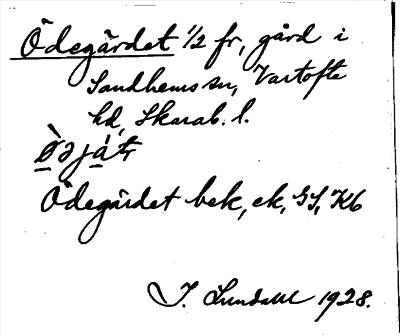 Ödegärdet 1/2 fr, gård i
Sandhems sn, Vartofta
hd, Skarab. l.
Ödegärdet bek, ek, GS, Kb
I. Lundahl 1928.